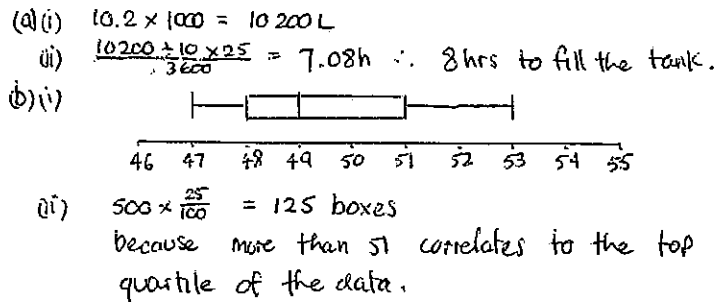 (a)(i) 10.2 × 1000 = 10 200 L
(ii) 10200 ÷ 10 × 25 / 3600 = 7.08h ∴ 8hrs to fill the tank.
(b)(i)
46 47 48 49 50 51 52 53 54 55
(ii) 500 × 25/100 = 125 boxes
because more than 51 correlates to the top
quartile of the data.